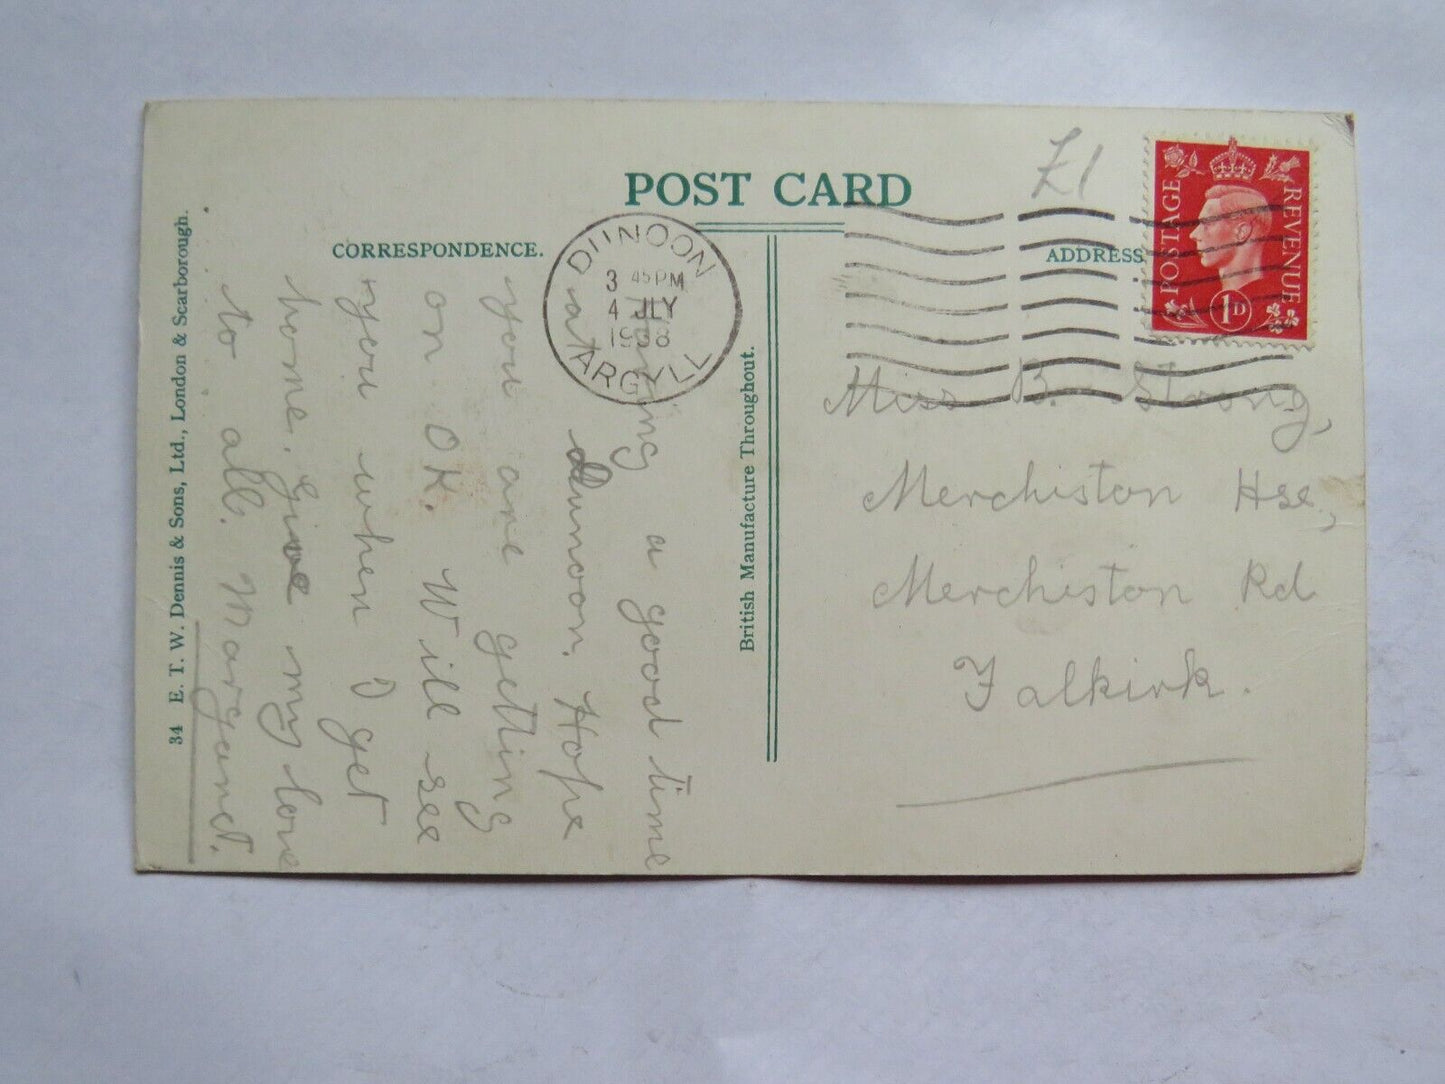 POST CARD
£1
CORRESPONDENCE.
ADDRESS
POSTAGE REVENUE
1D
DUNOON
3 45 PM
4 JLY
1938
ARGYLL
Having a good time
at Dunoon. Hope
you are getting
on OK. Will see
you when I get
home. Give my love
to all. Margaret.
Miss B. Strong,
Merchiston Hse,
Merchiston Rd
Falkirk.
British Manufacture Throughout.
34 E. T. W. Dennis & Sons, Ltd., London & Scarborough.